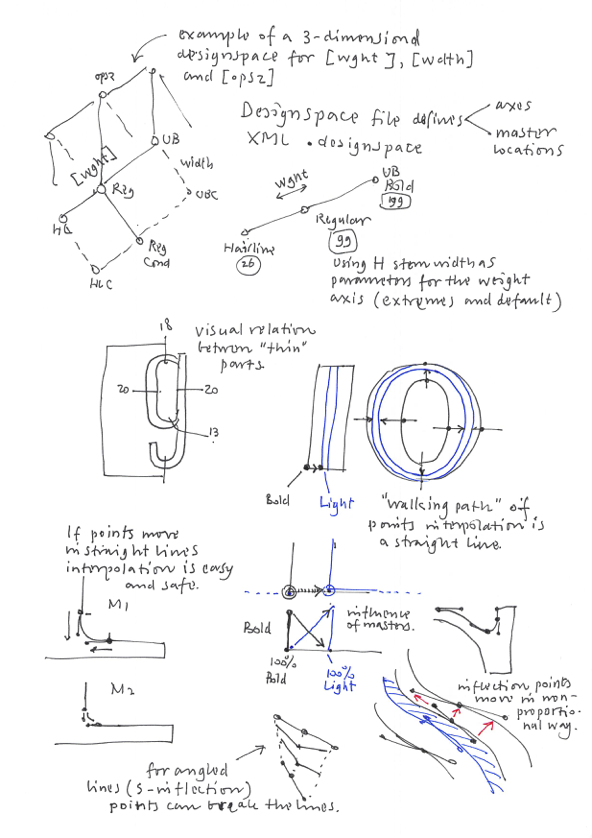 example of a 3-dimensional
designspace for [wght], [wdth]
and [opsz]
opsz
[wght]
UB
width
Reg
UBC
HL
Reg
Cond
HLC
Designspace file defines
axes
master
locations
XML .designspace
wght
UB
Bold
199
Regular
99
Hairline
26
Using H stem width as
parameters for the weight
axis (extremes and default)
18
visual relation
between "thin"
parts.
20
20
13
Bold
Light
"walking path" of
points interpolation is
a straight line.
If points move
in straight lines
interpolation is easy
and safe.
M1
Bold
influence
of masters.
100%
Bold
100%
Light
M2
inflection points
move in non-
proportio-
nal way.
for angled
lines (S-inflection)
points can break the lines.